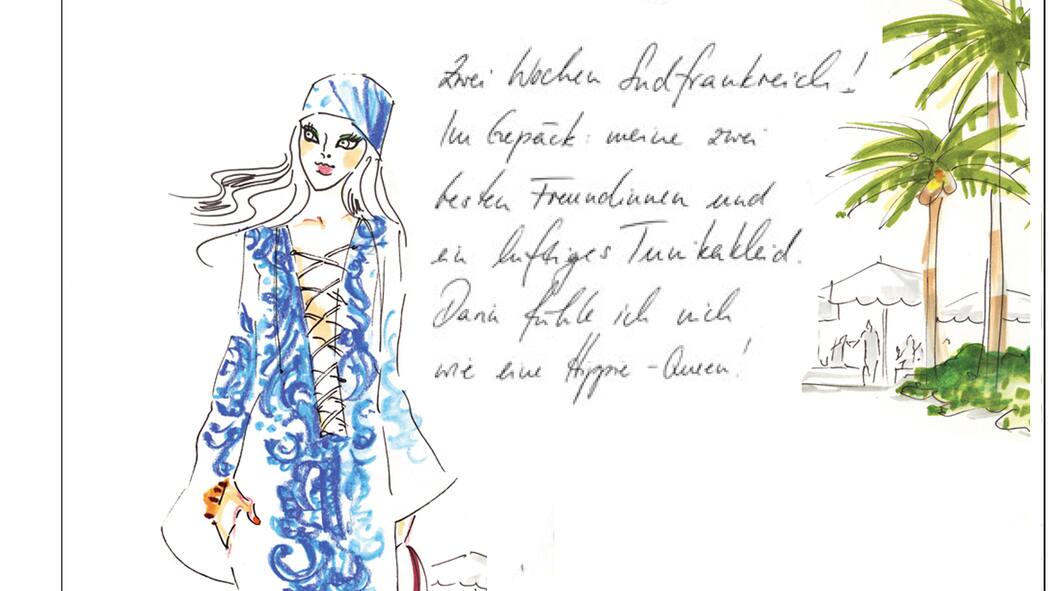 Zwei Wochen Südfrankreich!
Im Gepäck: meine zwei
besten Freundinnen und
ein luftiges Tunikakleid.
Darin fühle ich mich
wie eine Hippie-Queen!